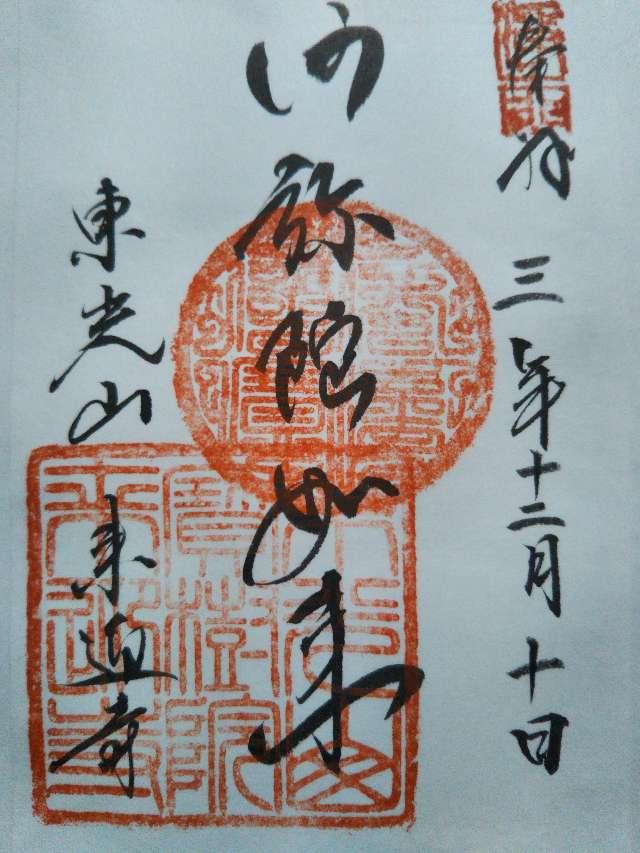 奉拝 三年十二月十日
阿弥陀如来
東光山 来迎寺